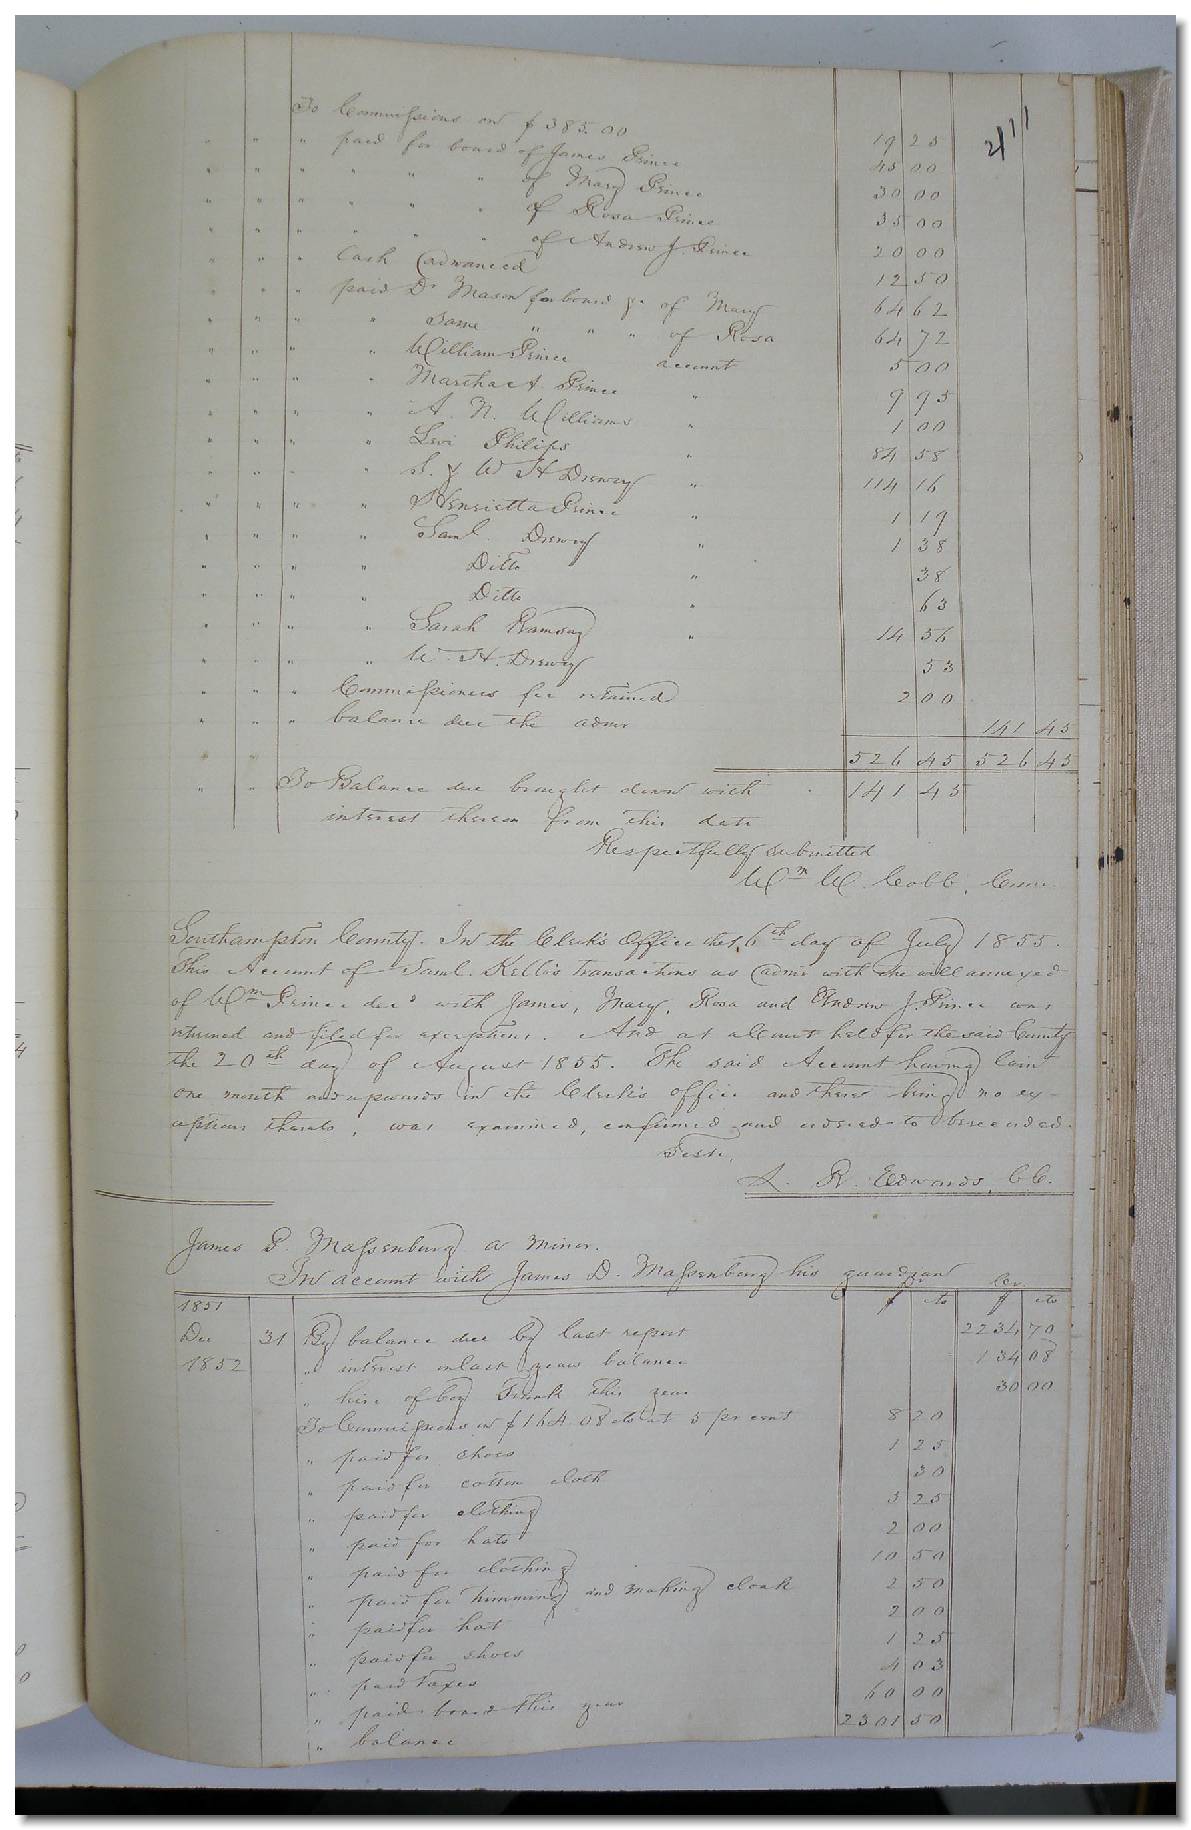 211
To Commissions on $385.00 19 25
" " " paid for board of James Prince 45 00
" " " " " " of Mary Prince 30 00
" " " " " " of Rosa Prince 35 00
" " " " " " of Andrew J. Prince 20 00
" " " Cash advanced 12 50
" " " paid Dr Mason for board &c of Mary 64 62
" " " " Same " " " of Rosa 64 72
" " " " William Prince account 5 00
" " " " Martha A. Prince " 9 95
" " " " A. N. Williams " 1 00
" " " " Levi Philips " 84 58
" " " " S. & W H Drewry " 114 16
" " " " Henrietta Prince " 1 19
" " " " Saml. Drewry " 1 38
" " " " Ditto " 38
" " " " Ditto " 63
" " " " Sarah Ramsey " 14 56
" " " " W. H. Drewry 53
" " " Commissioners fee retained 2 00
" " " balance due the admr 141 45
526 45 526 45
" " To Balance due brought down with 141 45
interest thereon from this date
Respectfully submitted
Wm W. Cobb, Comr.
Southampton County. In the Clerk's Office the 6th day of July 1855.
This Account of Saml. Kello's transactions as admr with the will annexed
of Wm Prince decd with James, Mary, Rosa and Andrew J. Prince was
returned and filed for exceptions. And at a Court held for the said County
the 20th day of August 1855. The said Account having lain
one month and upwards in the Clerk's office and there being no ex-
ceptions thereto, was examined, confirmed and ordered to be recorded.
Teste,
L. R. Edwards, CC.
James P. Massenburg a minor.
In account with James D. Massenburg his guardian
1851 $ cts Cr. $ cts
Dec 31 By balance due by last report 2234 70
1852 " interest on last years balance 134 08
" hire of boy Frank this year 30 00
To Commissions on $164.08 cts at 5 pr cent 8 20
" paid for shoes 1 25
" paid for cotton cloth 30
" paid for clothing 3 25
" paid for hats 2 00
" paid for clothing 10 50
" paid for trimming and making cloak 2 50
" paid for hat 2 00
" paid for shoes 1 25
" paid taxes 4 03
" paid board this year 60 00
" balance 2301 50